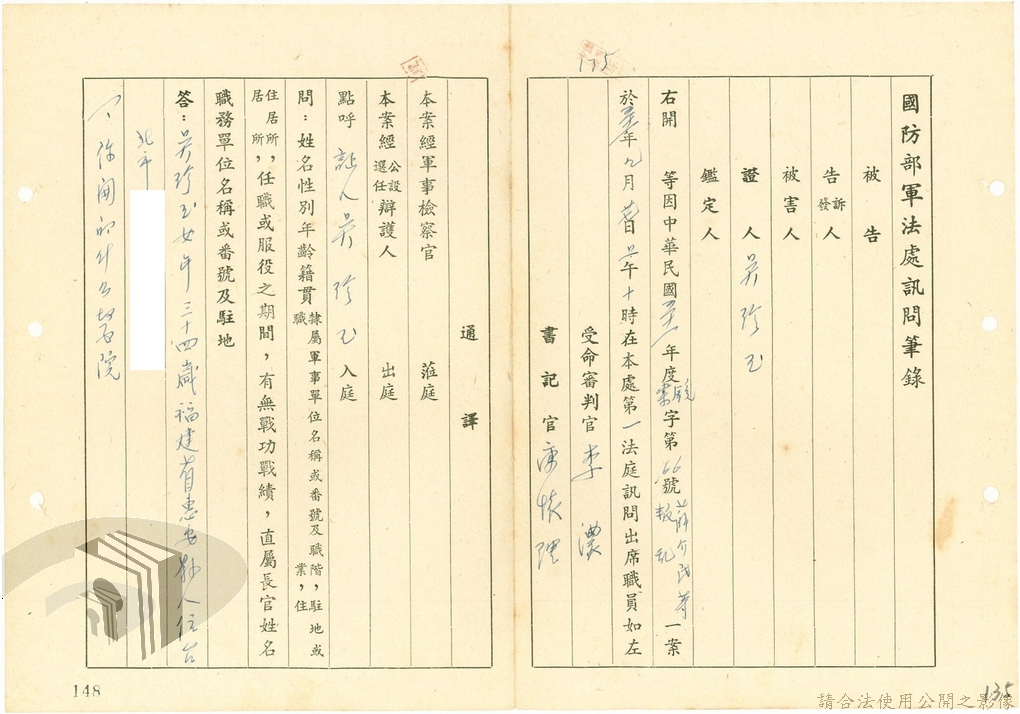 135
國防部軍法處訊問筆錄
被告
告訴發人
被害人
證人 吳珍玉
鑑定人
右開 等因中華民國五一年度 字第66號 叛亂一案
於五一年九月 日上午十時在本處第一法庭訊問出席職員如左
受命審判官 李濃
書記官
通譯
本案經軍事檢察官 蒞庭
本案經公設選任辯護人 出庭
點呼 証人吳珍玉 入庭
問:姓名性別年齡籍貫隸屬軍事單位名稱或番號及職階,駐地或職業,住
居所,任職或服役之期間,有無戰功戰績,直屬長官姓名
住居所,
職務單位名稱或番號及駐地
答:吳珍玉女年三十四歲福建省惠安縣人住台
北市
你開的什么醫院
148
135
請合法使用公開之影像